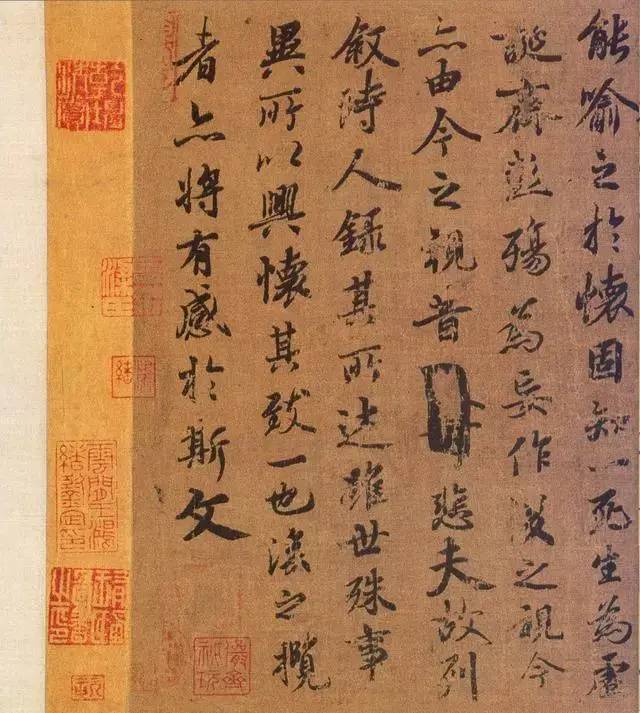 能喻之於懷固知一死生為虛
誕齊彭殤為妄作後之視今
亦由今之視昔悲夫故列
叙時人錄其所述雖世殊事
異所以興懷其致一也後之攬
者亦將有感於斯文
雲間王鴻緒鑒定印